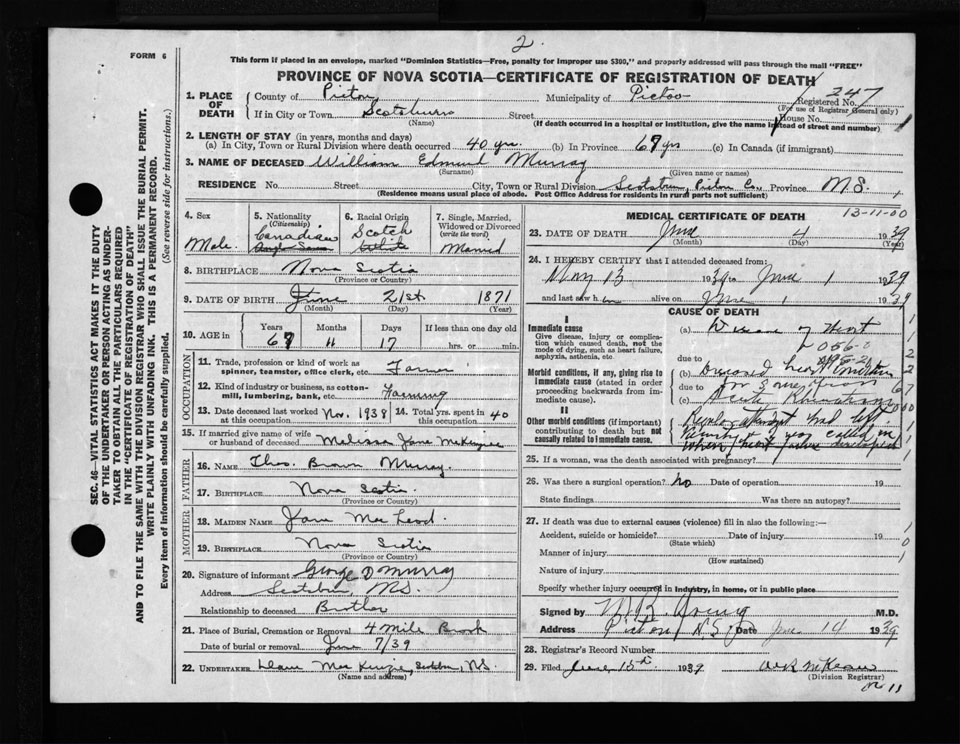 2.
FORM 6
This form if placed in an envelope, marked "Dominion Statistics—Free, penalty for improper use $300," and properly addressed will pass through the mail "FREE"
PROVINCE OF NOVA SCOTIA—CERTIFICATE OF REGISTRATION OF DEATH
SEC. 46—VITAL STATISTICS ACT MAKES IT THE DUTY
OF THE UNDERTAKER OR PERSON ACTING AS UNDER-
TAKER TO OBTAIN ALL THE PARTICULARS REQUIRED
IN THE "CERTIFICATE OF REGISTRATION OF DEATH"
AND TO FILE THE SAME WITH THE DIVISION REGISTRAR WHO SHALL ISSUE THE BURIAL PERMIT.
WRITE PLAINLY WITH UNFADING INK. THIS IS A PERMANENT RECORD.
Every item of information should be carefully supplied. (See reverse side for instructions.)
1. PLACE OF DEATH
County of Pictou Municipality of Pictou Registered No. 247
(For use of Registrar General only)
If in City or Town Scotsburn Street House No.
(Name) (If death occurred in a hospital or institution, give the name instead of street and number)
2. LENGTH OF STAY (in years, months and days)
(a) In City, Town or Rural Division where death occurred 40 yrs. (b) In Province 67 yrs (c) In Canada (if immigrant)
3. NAME OF DECEASED William Edmund Murray
(Surname) (Given name or names)
RESIDENCE No. Street City, Town or Rural Division Scotsburn, Pictou Co., Province N.S.
(Residence means usual place of abode. Post Office Address for residents in rural parts not sufficient)
4. Sex Male
5. Nationality (Citizenship) Canadian
6. Racial Origin Scotch White
7. Single, Married, Widowed or Divorced (write the word) Married
8. BIRTHPLACE Nova Scotia
(Province or Country)
9. DATE OF BIRTH June 21st 1871
(Month) (Day) (Year)
10. AGE in Years Months Days If less than one day old
67 11 17 hrs. or min.
OCCUPATION
11. Trade, profession or kind of work as spinner, teamster, office clerk, etc. Farmer
12. Kind of industry or business, as cotton-mill, lumbering, bank, etc. Farming
13. Date deceased last worked at this occupation Nov. 1938 14. Total yrs. spent in this occupation 40
15. If married give name of wife or husband of deceased Melissa Jane McKenzie
FATHER
16. Name Thos. Brown Murray.
17. Birthplace Nova Scotia.
(Province or Country)
MOTHER
18. MAIDEN NAME Jane MacLeod
19. BIRTHPLACE Nova Scotia
(Province or Country)
20. Signature of informant George D Murray
Address Scotsburn, N.S.
Relationship to deceased Brother
21. Place of Burial, Cremation or Removal 4 Mile Brook
Date of burial or removal June 7/39
22. UNDERTAKER MacKenzie, N.S.
(Name and address)
MEDICAL CERTIFICATE OF DEATH
13-11-00
23. DATE OF DEATH June 4 1939
(Month) (Day) (Year)
24. I HEREBY CERTIFY that I attended deceased from:
May 13 1939 to June 1 1939
and last saw him alive on June 1 1939
CAUSE OF DEATH
I
Immediate cause
Give disease, injury or complica-
tion which caused death, not the
mode of dying, such as heart failure,
asphyxia, asthenia, etc.
(a) Disease of Heart
056-0
due to
Morbid conditions, if any, giving rise to
immediate cause (stated in order
proceeding backwards from im-
mediate cause).
(b) Diseased heart condition
due to for
(c) Acute Rheumatism
II
Other morbid conditions (if important)
contributing to death but not
causally related to immediate cause.
Regular attendant had left
when
25. If a woman, was the death associated with pregnancy?
26. Was there a surgical operation? no Date of operation 19
State findings Was there an autopsy?
27. If death was due to external causes (violence) fill in also the following:—
Accident, suicide or homicide? Date of injury 19
(State which)
Manner of injury
(How sustained)
Nature of injury
Specify whether injury occurred in industry, in home, or in public place
Signed by M.D.
Address Pictou N.S. Date June 14 1939
28. Registrar's Record Number
29. Filed June 15th 1939
(Division Registrar)